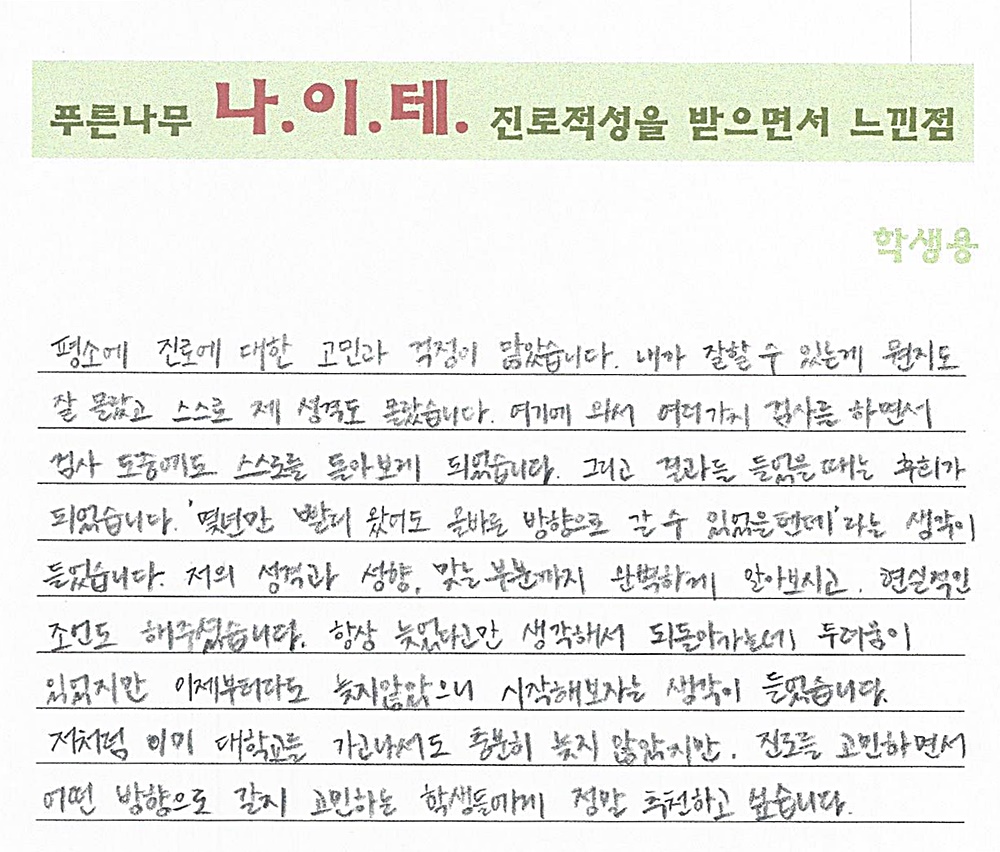 푸른나무 나.이.테. 진로적성을 받으면서 느낀점
학생용
평소에 진로에 대한 고민과 걱정이 많았습니다. 내가 잘할 수 있는게 뭔지도
잘 몰랐고 스스로 제 성격도 몰랐습니다. 여기에 와서 여러가지 검사를 하면서
검사 도중에도 스스로를 돌아보게 되었습니다. 그리고 결과를 들었을때는 후회가
되었습니다. '몇년만 빨리 왔어도 올바른 방향으로 갈 수 있었을텐데'라는 생각이
들었습니다. 저의 성격과 성향, 맞는 부분까지 완벽하게 알아보시고, 현실적인
조언도 해주셨습니다. 항상 늦었다고만 생각해서 되돌아가는데 두려움이
있었지만 이제부터라도 늦지않았으니 시작해보자는 생각이 들었습니다.
저처럼 이미 대학교를 가고나서도 충분히 늦지 않았지만, 진로를 고민하면서
어떤 방향으로 갈지 고민하는 학생들에게 정말 추천하고 싶습니다.